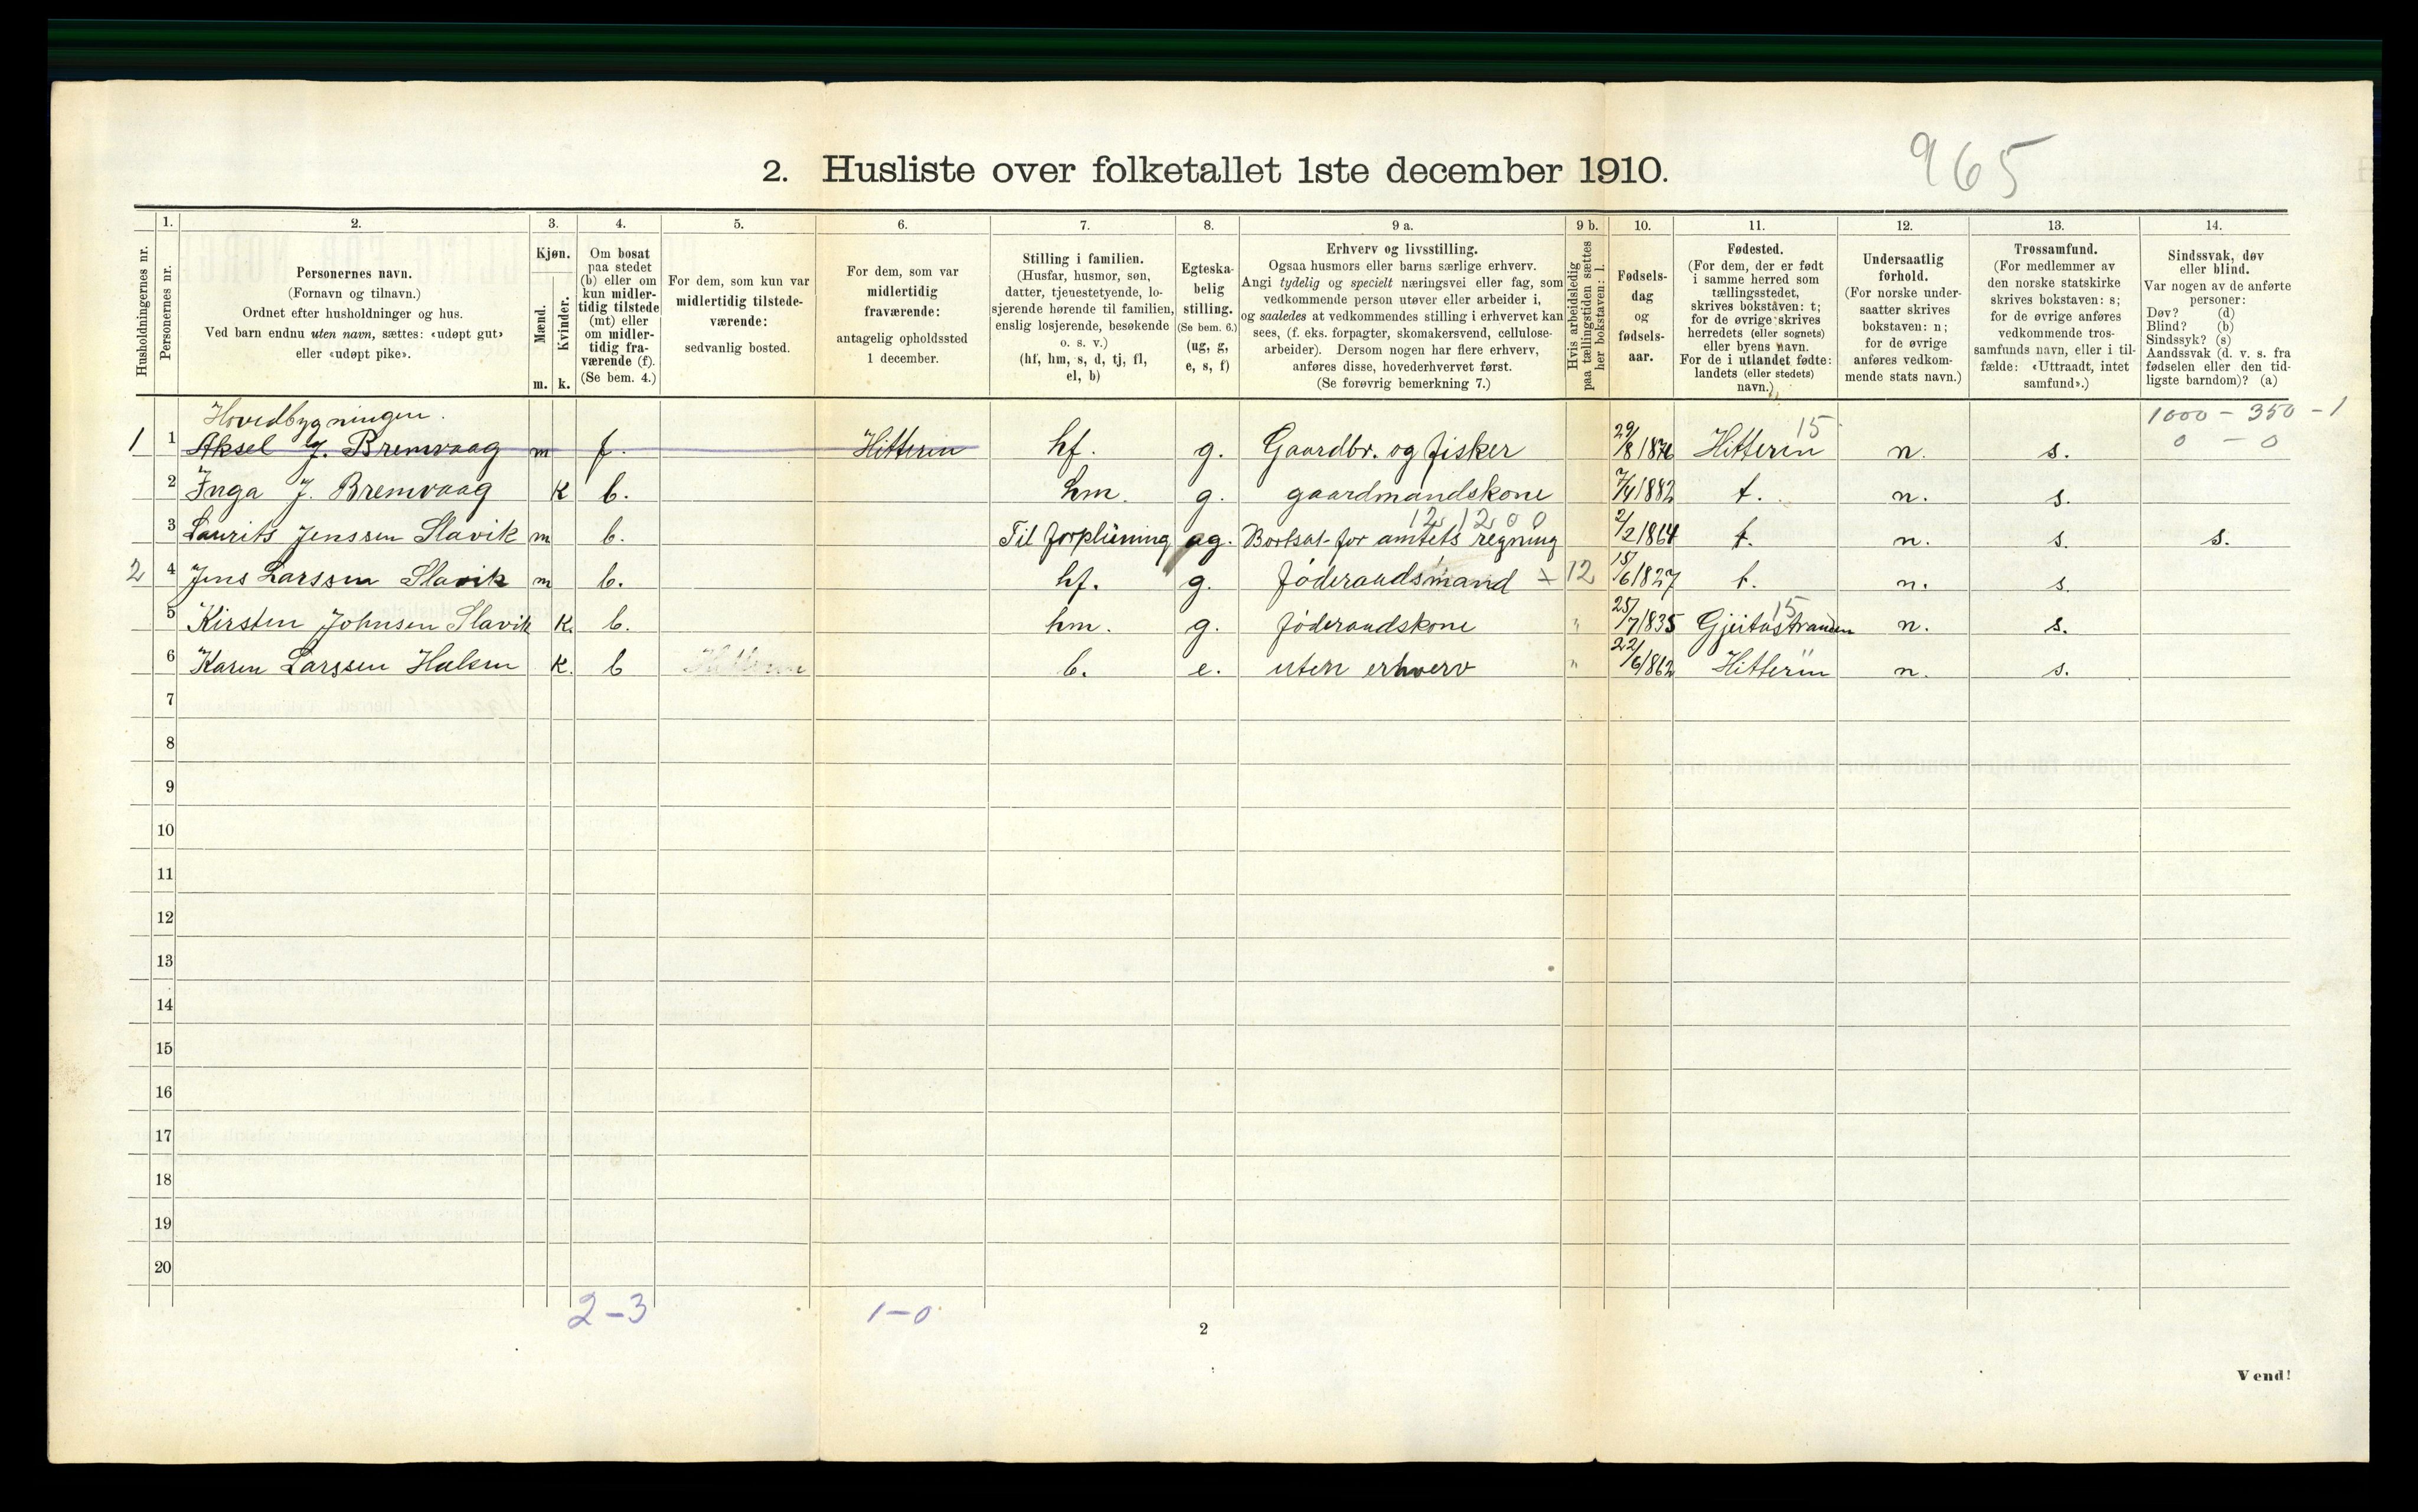 965
2. Husliste over folketallet 1ste december 1910.
Husholdningernes nr.
1. Personernes nr.
2. Personernes navn. (Fornavn og tilnavn.) Ordnet efter husholdninger og hus. Ved barn endnu uten navn, sættes: «udøpt gut» eller «udøpt pike».
3. Kjøn. Mænd. m. Kvinder. k.
4. Om bosat paa stedet (b) eller om kun midlertidig tilstede (mt) eller om midlertidig fraværende (f). (Se bem. 4.)
5. For dem, som kun var midlertidig tilstedeværende: sedvanlig bosted.
6. For dem, som var midlertidig fraværende: antagelig opholdssted 1 december.
7. Stilling i familien. (Husfar, husmor, søn, datter, tjenestetyende, losjerende hørende til familien, enslig losjerende, besøkende o. s. v.) (hf, hm, s, d, tj, fl, el, b)
8. Egteskabelig stilling. (Se bem. 6.) (ug, g, e, s, f)
9 a. Erhverv og livsstilling. Ogsaa husmors eller barns særlige erhverv. Angi tydelig og specielt næringsvei eller fag, som vedkommende person utøver eller arbeider i, og saaledes at vedkommendes stilling i erhvervet kan sees, (f. eks. forpagter, skomakersvend, cellulosearbeider). Dersom nogen har flere erhverv, anføres disse, hovederhvervet først. (Se forøvrig bemerkning 7.)
9 b. Hvis arbeidsledig paa tællingstiden sættes her bokstaven: l.
10. Fødselsdag og fødselsaar.
11. Fødested. (For dem, der er født i samme herred som tællingsstedet, skrives bokstaven: t; for de øvrige skrives herredets (eller sognets) eller byens navn. For de i utlandet fødte: landets (eller stedets) navn.)
12. Undersaatlig forhold. (For norske undersaatter skrives bokstaven: n; for de øvrige anføres vedkommende stats navn.)
13. Trossamfund. (For medlemmer av den norske statskirke skrives bokstaven: s; for de øvrige anføres vedkommende trossamfunds navn, eller i tilfælde: «Uttraadt, intet samfund».)
14. Sindssvak, døv eller blind. Var nogen av de anførte personer: Døv? (d) Blind? (b) Sindssyk? (s) Aandssvak (d. v. s. fra fødselen eller den tidligste barndom)? (a)
Hovedbygningen. 1000 - 350 - 1
1 1 Aksel J. Bremvaag m f. Hitteren hf. g. Gaardbr. og fisker 29/8 1876 Hitteren 15 n. s. 0 - 0
2 Inga J. Bremvaag k b. hm. g. gaardmandskone 7/4 1882 t. n. s.
12 1200
3 Laurits Jenssen Slavik m b. Til forpleining ug. Bortsat for amtets regning 2/2 1864 t. n. s. s.
2 4 Jens Larssen Slavik m b. hf. g. føderaadsmand + 12 15/6 1827 t. n. s.
5 Kirsten Johnsen Slavik k. b. hm. g. føderaadskone " 25/7 1835 Gjeitastranden 15 n. s.
6 Karen Larssen Halsen k. b Hitteren b. e. uten erhverv " 22/6 1862 Hitteren n. s.
7
8
9
10
11
12
13
14
15
16
17
18
19
20
2-3 1-0
2
Vend!